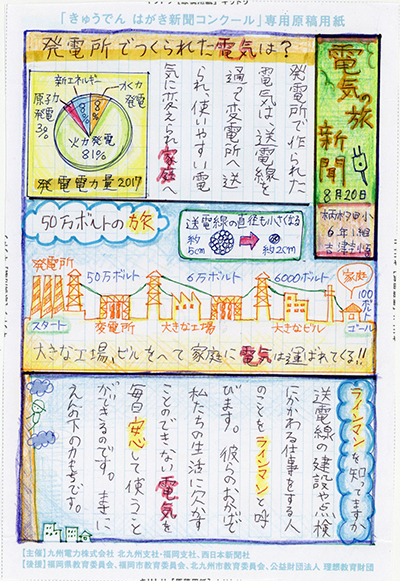 「きゅうでん はがき新聞コンクール」専用原稿用紙
電気の旅
新聞
8月20日
6年1組
発電所でつくられた電気は?
新エネルギー
水力発電
8%
8%
原子力発電
3%
火力発電
81%
発電電力量2017
発電所で作られた
電気は、送電線を
通って変電所へ送
られ、使いやすい電
気に変えられ家庭へ
50万ボルトの旅
送電線の直径も小さくなる
約5cm
約2cm
発電所
50万ボルト
6万ボルト
6000ボルト
家庭
100ボルト
スタート
変電所
大きな工場
大きなビル
ゴール
大きな工場、ビルをへて家庭に電気は運ばれてくる!!
ラインマンを知ってますか
送電線の建設や点検
にかかわる仕事をする人
のことをラインマンと呼
びます。彼らのおかげで
私たちの生活に欠かす
ことのできない電気を
毎日安心して使うこと
ができるのです。まさに
えんの下の力もちです。
【主催】九州電力株式会社 北九州支社・福岡支社、西日本新聞社
【後援】福岡県教育委員会、福岡市教育委員会、北九州市教育委員会、公益財団法人 理想教育財団